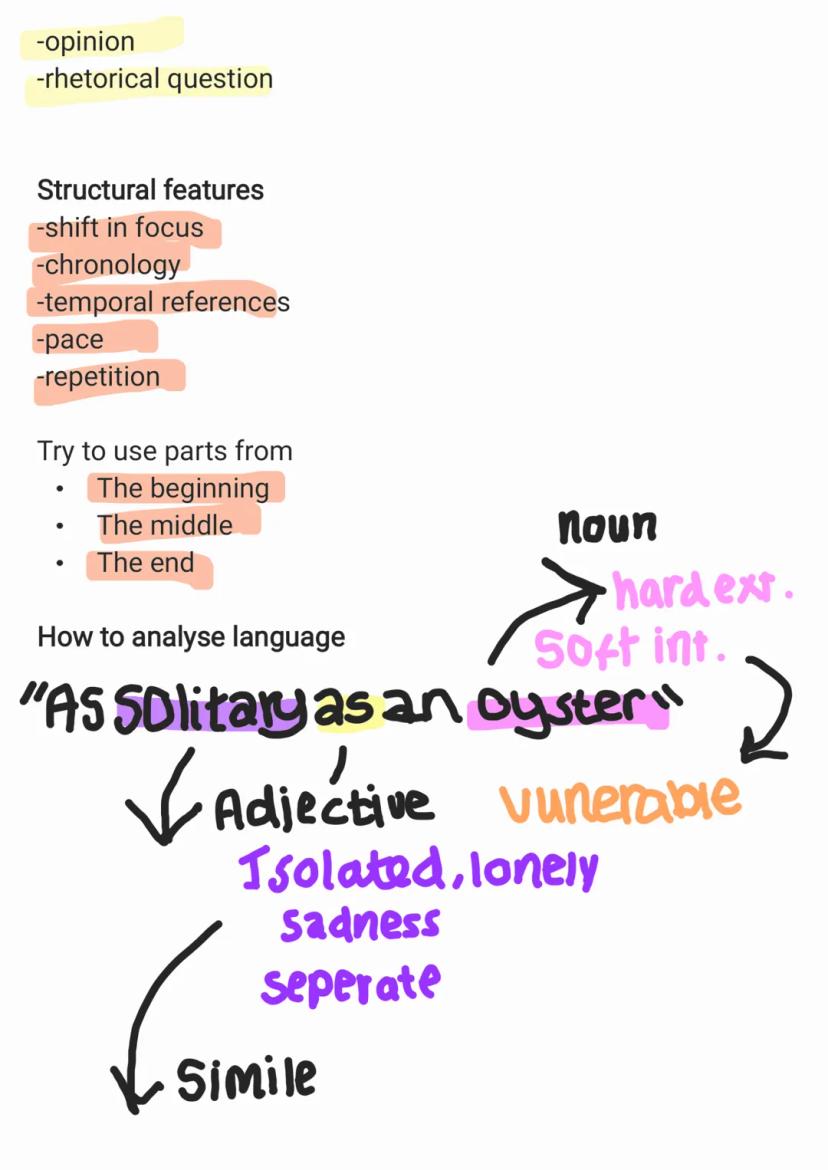 -opinion
-rhetorical question
Structural features
-shift in focus
-chronology
-temporal references
-pace
-repetition
Try to use parts from
• The beginning
• The middle
• The end
noun
hard ext.
soft int.
How to analyse language
"As solitary as an oyster"
Adjective
vunerable
Isolated, lonely
sadness
seperate
simile